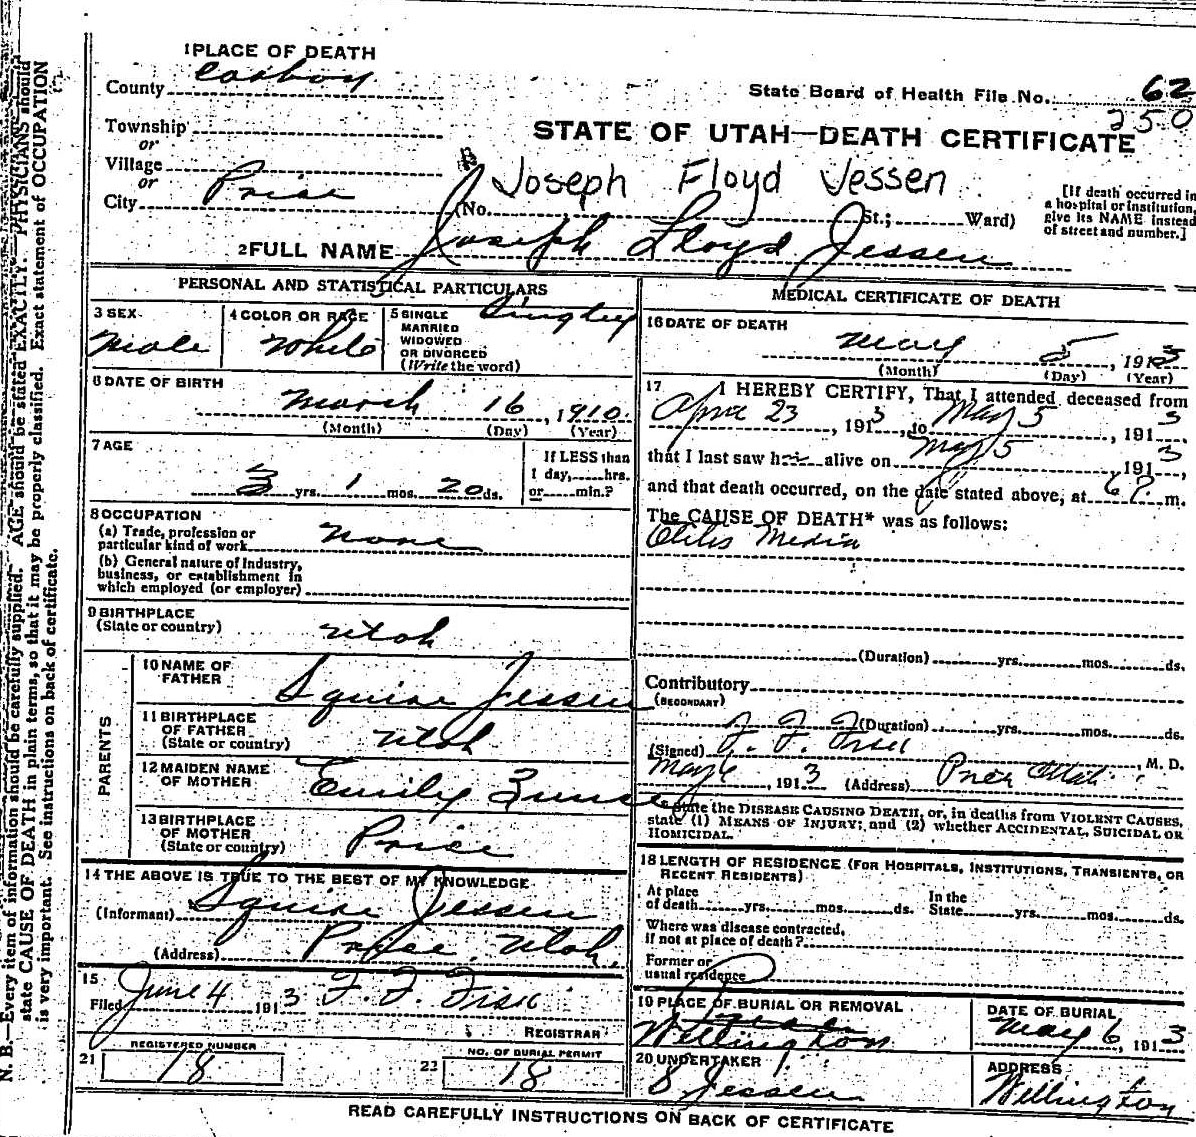 1 PLACE OF DEATH
County Carbon
State Board of Health File No. 62
250
Township
or
Village
or
City Price
STATE OF UTAH—DEATH CERTIFICATE
Joseph Floyd Jessen
(No. St.; Ward)
[If death occurred in
a hospital or institution,
give its NAME instead
of street and number.]
2 FULL NAME Joseph Floyd Jessen
PERSONAL AND STATISTICAL PARTICULARS
3 SEX
Male
4 COLOR OR RACE
White
5 SINGLE
MARRIED
WIDOWED
OR DIVORCED
(Write the word)
6 DATE OF BIRTH
March 16, 1910.
(Month) (Day) (Year)
7 AGE
3 yrs. 1 mos. 20 ds.
If LESS than
1 day, hrs.
or min.?
8 OCCUPATION
(a) Trade, profession or
particular kind of work None
(b) General nature of Industry,
business, or establishment in
which employed (or employer)
9 BIRTHPLACE
(State or country)
Utah
PARENTS
10 NAME OF
FATHER
Squire Jessen
11 BIRTHPLACE
OF FATHER
(State or country)
Utah
12 MAIDEN NAME
OF MOTHER
Emily
13 BIRTHPLACE
OF MOTHER
(State or country)
Price
14 THE ABOVE IS TRUE TO THE BEST OF MY KNOWLEDGE
(Informant) Squire Jessen
(Address) Price, Utah.
15
Filed June 4 1913 F. F. Fisk
REGISTRAR
21
REGISTERED NUMBER
18
22
NO. OF BURIAL PERMIT
18
MEDICAL CERTIFICATE OF DEATH
16 DATE OF DEATH
May 5, 1913
(Month) (Day) (Year)
17 I HEREBY CERTIFY, That I attended deceased from
April 23, 1913, to May 5, 1913,
that I last saw him alive on May 5, 1913,
and that death occurred, on the date stated above, at 6 P. m.
The CAUSE OF DEATH* was as follows:
Otitis Media
(Duration) yrs. mos. ds.
Contributory
(SECONDARY)
(Duration) yrs. mos. ds.
(Signed) F. F. Fisk, M. D.
May 6, 1913 (Address) Price Utah
State the DISEASE CAUSING DEATH, or, in deaths from VIOLENT CAUSES,
state (1) MEANS OF INJURY; and (2) whether ACCIDENTAL, SUICIDAL OR
HOMICIDAL.
18 LENGTH OF RESIDENCE (FOR HOSPITALS, INSTITUTIONS, TRANSIENTS, OR
RECENT RESIDENTS)
At place
of death yrs. mos. ds.
In the
State yrs. mos. ds.
Where was disease contracted,
if not at place of death?
Former or
usual residence
19 PLACE OF BURIAL OR REMOVAL
Wellington
DATE OF BURIAL
May 6, 1913
20 UNDERTAKER
S Jessen
ADDRESS
Wellington
READ CAREFULLY INSTRUCTIONS ON BACK OF CERTIFICATE
N. B.—Every item of information should be carefully supplied. AGE should be stated EXACTLY. PHYSICIANS should
state CAUSE OF DEATH in plain terms, so that it may be properly classified. Exact statement of OCCUPATION
is very important. See instructions on back of certificate.